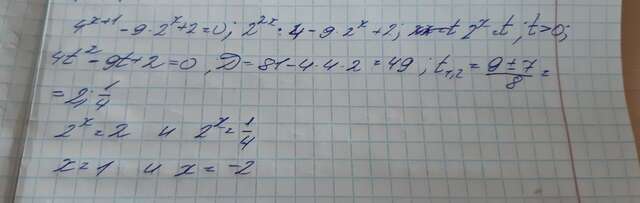 4^{x+1} - 9·2^x + 2 = 0; 2^{2x} · 4 - 9·2^x + 2; 2^x = t, t > 0;
4t² - 9t + 2 = 0, D = 81 - 4·4·2 = 49; t_{1,2} = (9 ± 7)/8 =
= 2; 1/4
2^x = 2 и 2^x = 1/4
x = 1 и x = -2